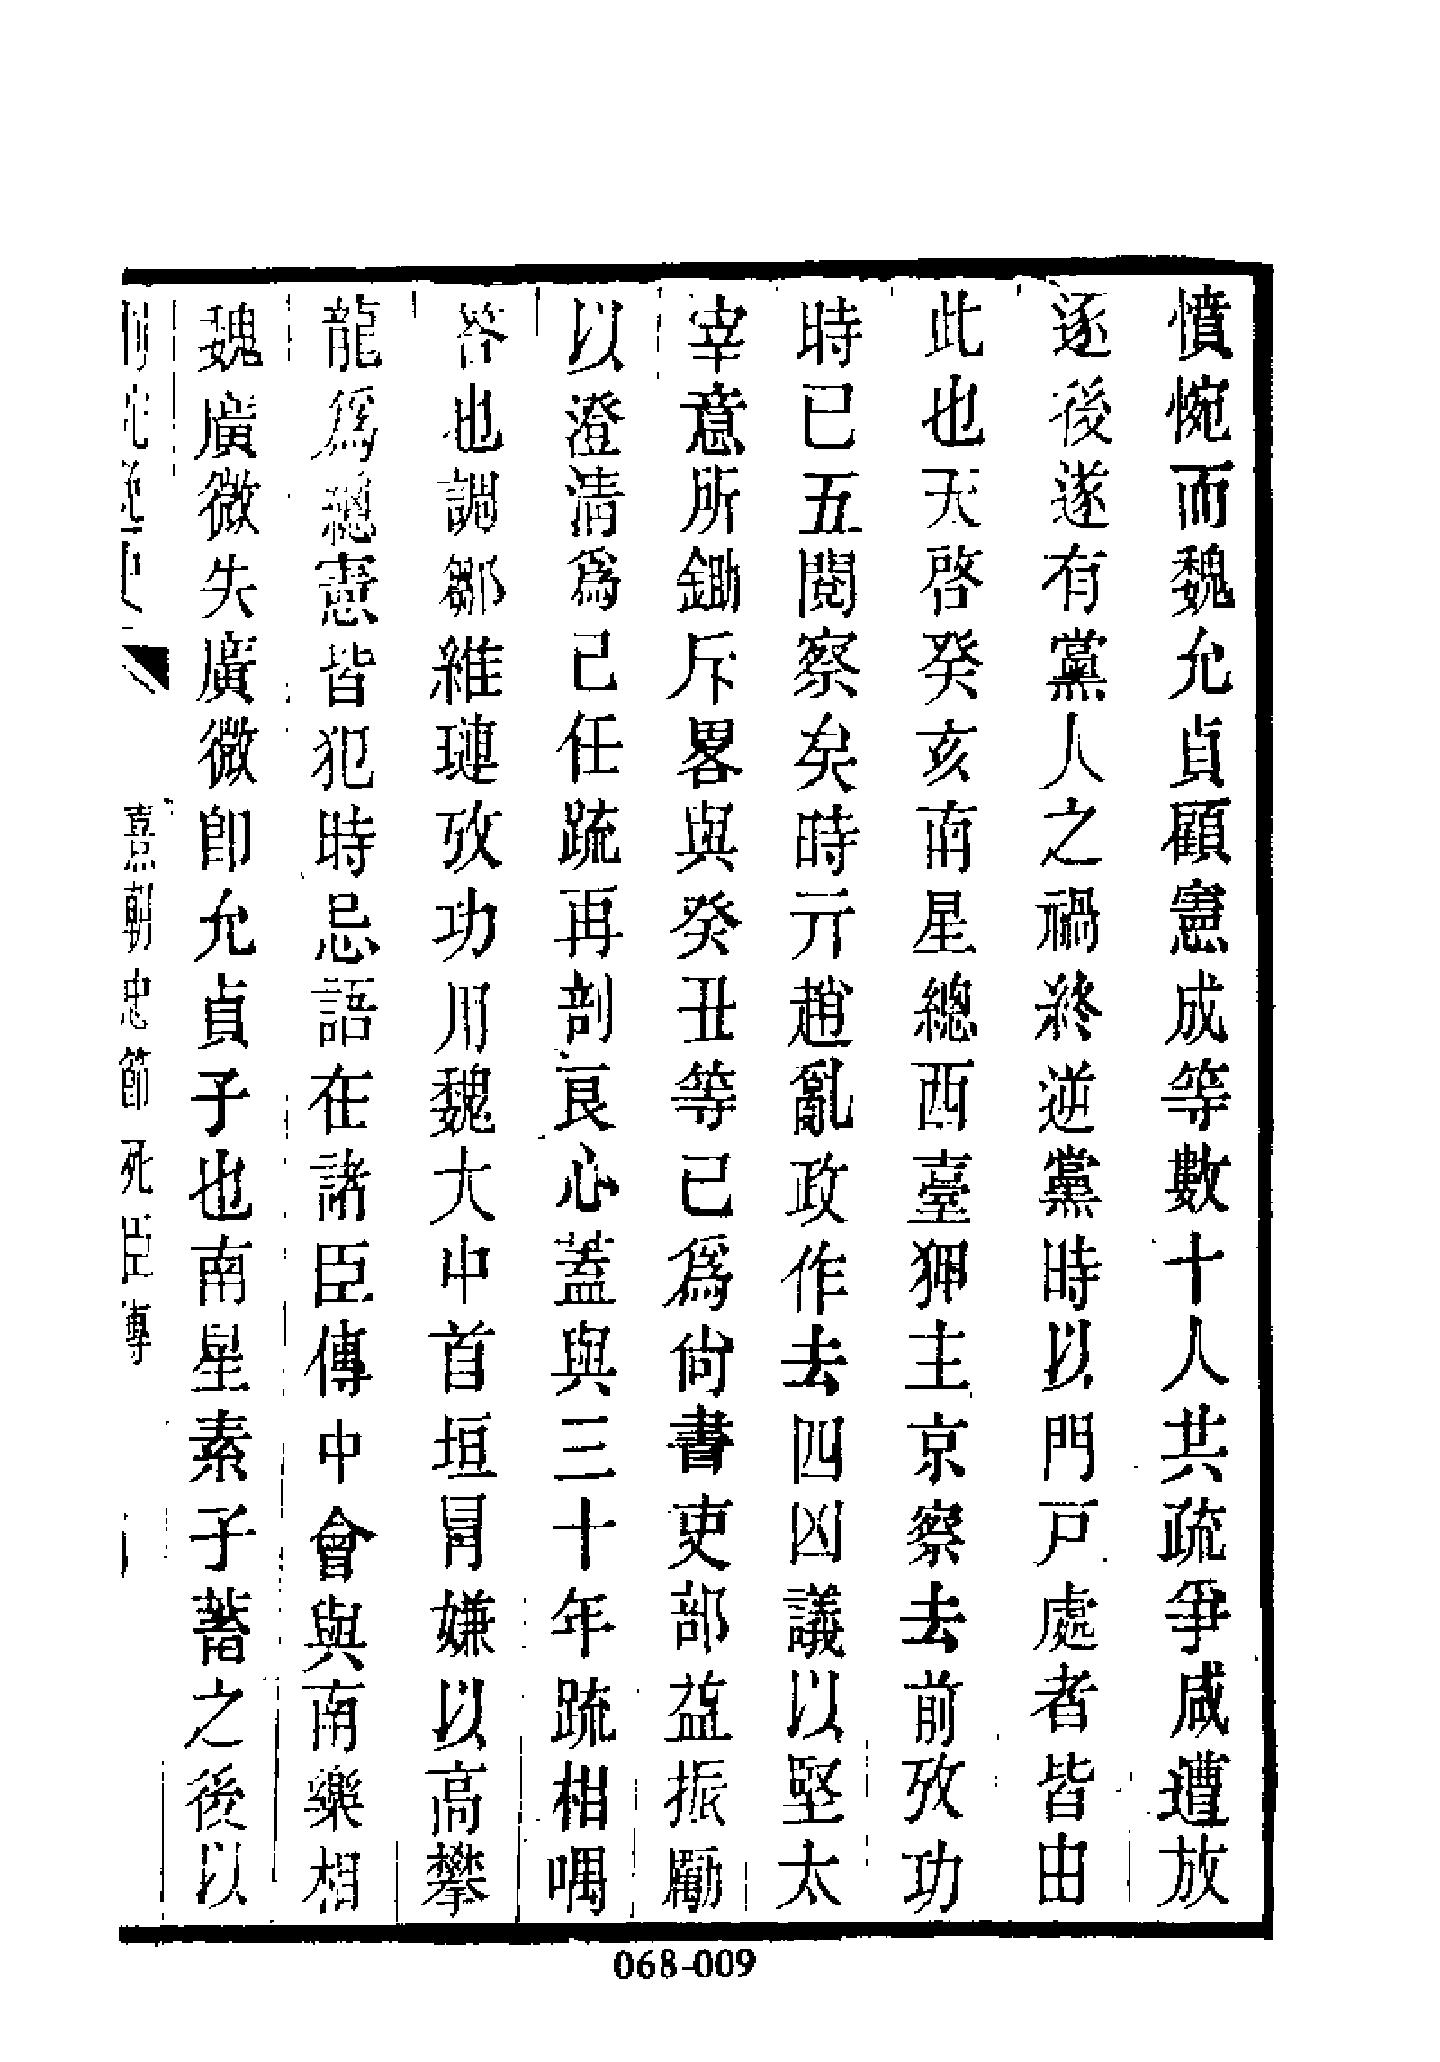 憤惋而魏允貞顧憲成等數十人共疏爭咸遭放
逐後遂有黨人之禍終逆黨時以門戸處者皆由
此也天啓癸亥南星總西臺猙主京察去前攷功
時已五閱察矣時亓趙亂政作去四凶議以堅太
宰意所鋤斥畧與癸丑等已爲尙書吏部益振勵
以澄清爲己任疏再剖良心蓋與三十年疏相喁
答也調鄒維璉攷功用魏大中首垣冐嫌以高攀
龍爲總憲皆犯時忌語在諸臣傳中會與南樂相
魏廣微失廣微卽允貞子也南星素子蓄之後以
熹朝忠節死臣傳
068-009